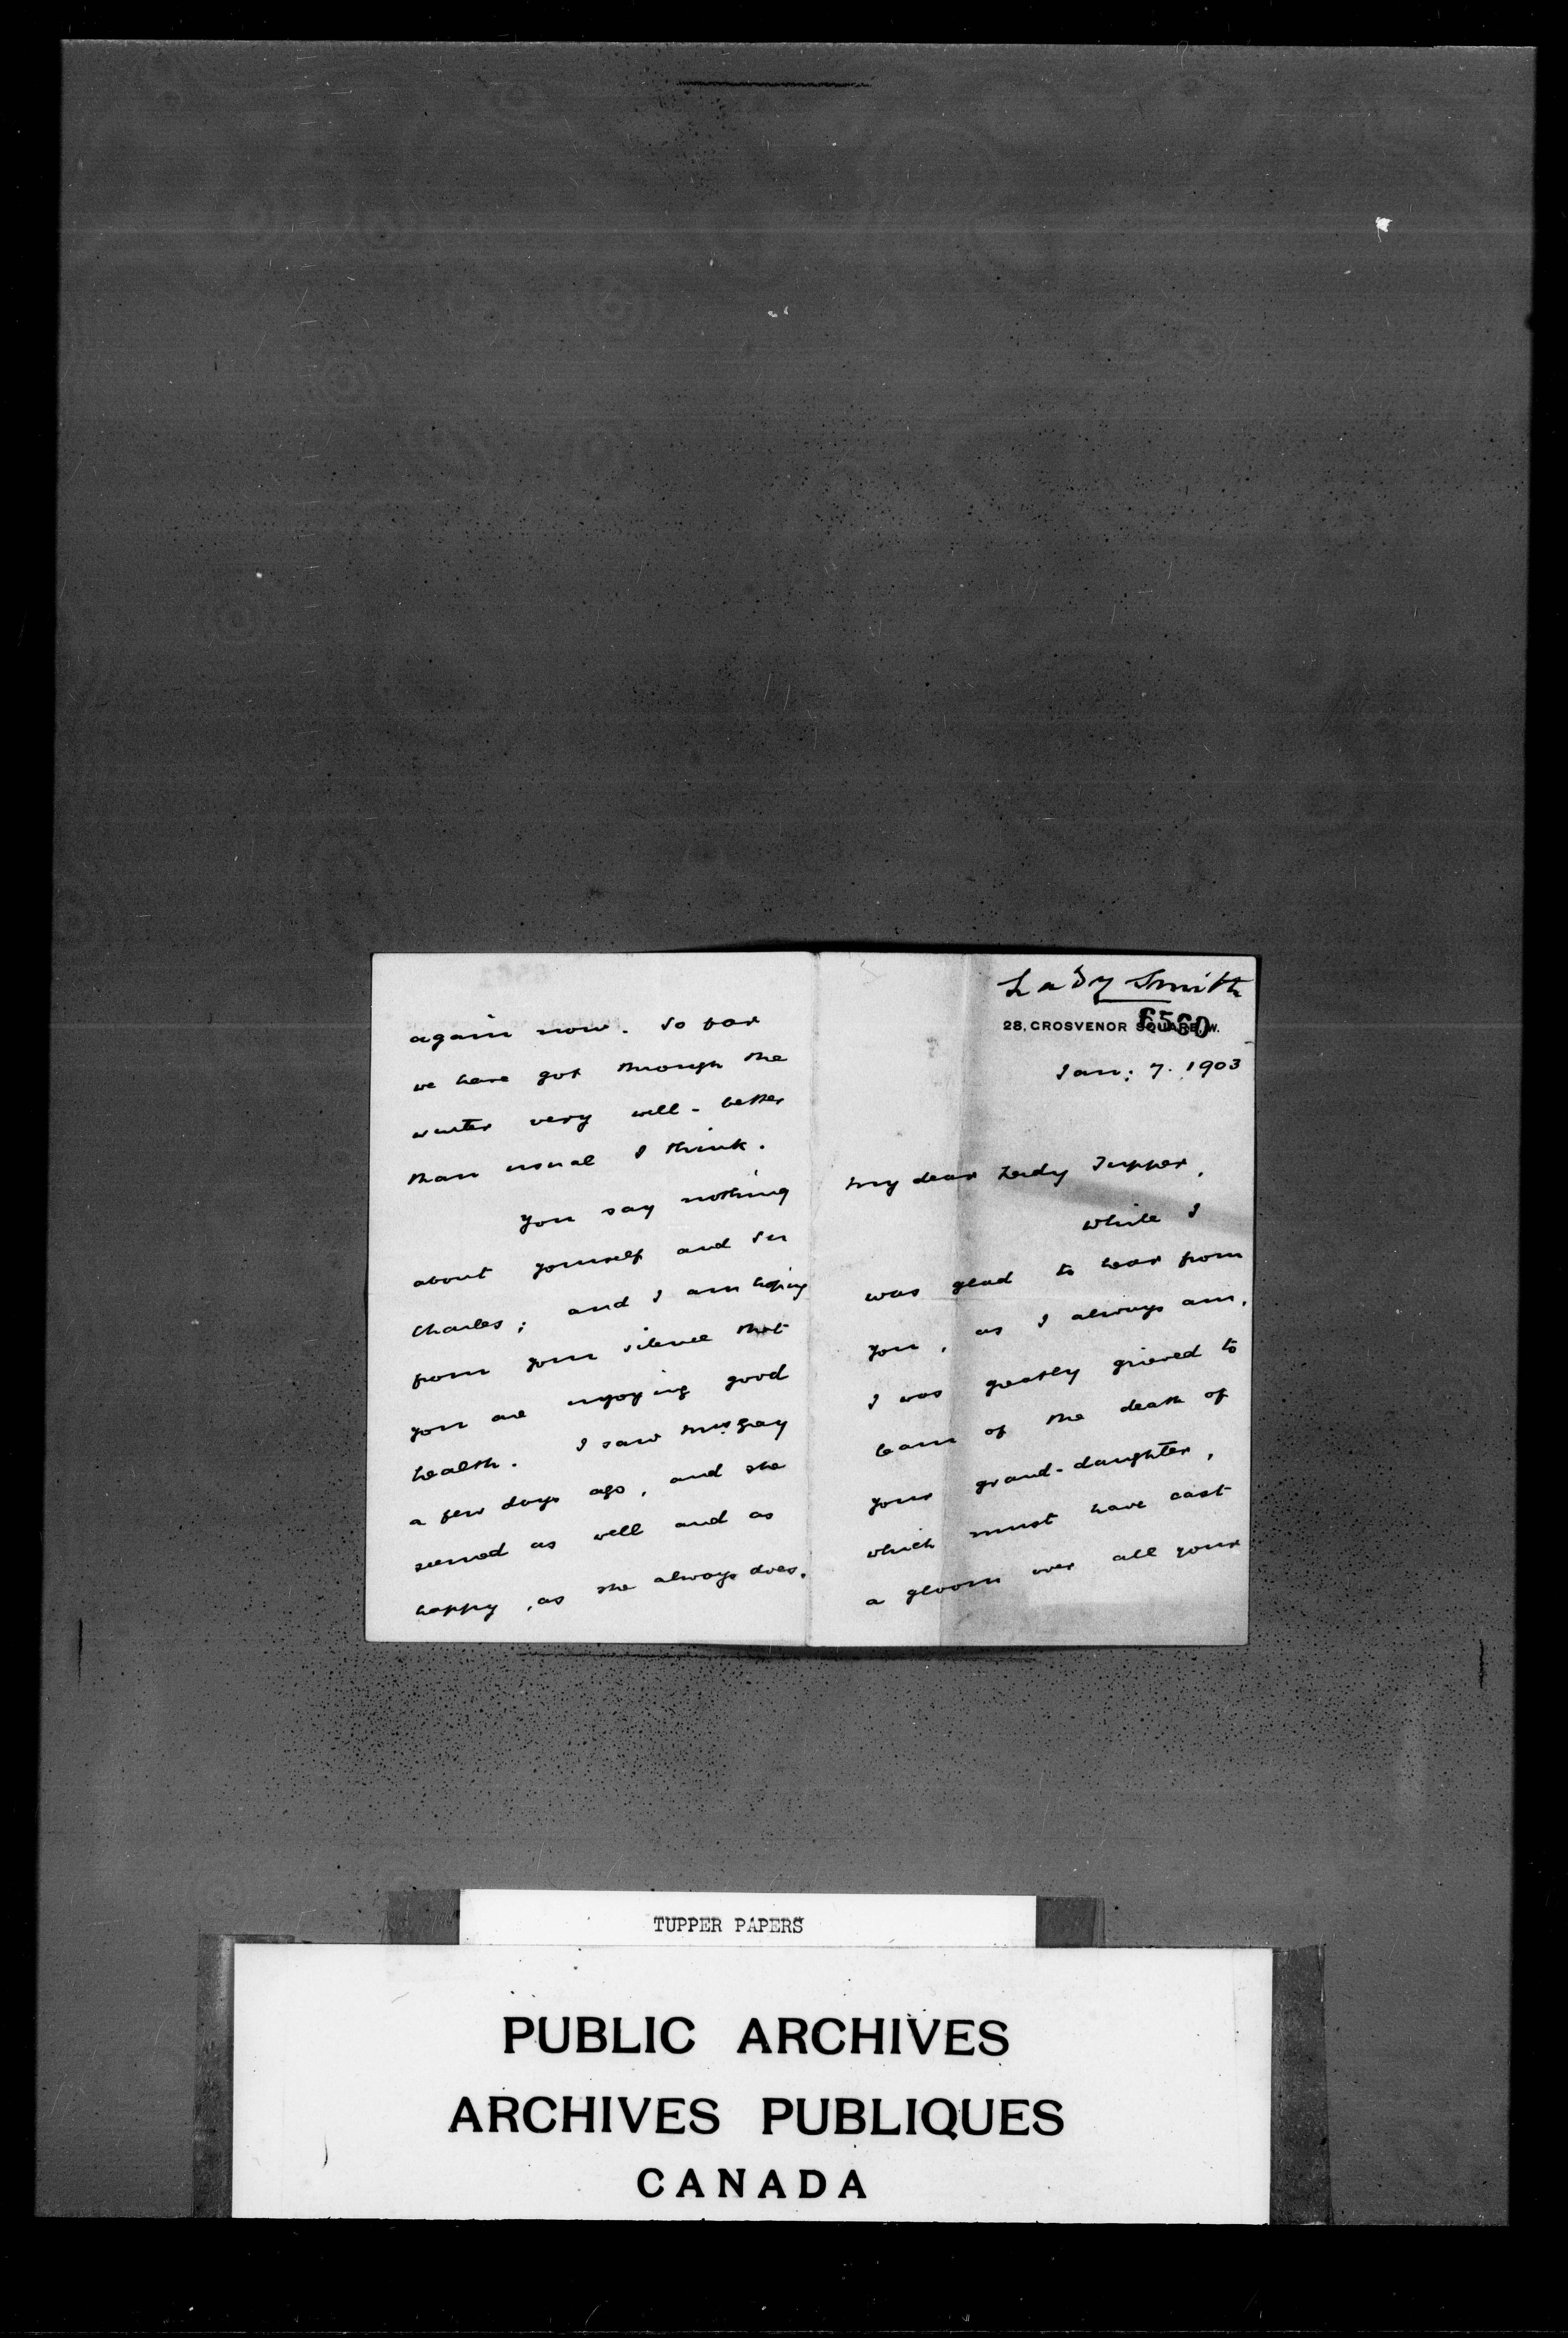 Lady Smith
6560
28, GROSVENOR SQUARE, W.
Jan: 7. 1903
My dear Lady Tupper,
While I
was glad to hear from
you, as I always am,
I was greatly grieved to
learn of the death of
your grand-daughter,
which must have cast
a gloom over all your
again now. So far
we have got through the
winter very well - better
than usual I think.
You say nothing
about yourself and Sir
Charles; and I am hoping
from your silence that
you are enjoying good
health. I saw Mrs Gray
a few days ago, and she
seemed as well and as
happy, as she always does.
TUPPER PAPERS
PUBLIC ARCHIVES
ARCHIVES PUBLIQUES
CANADA